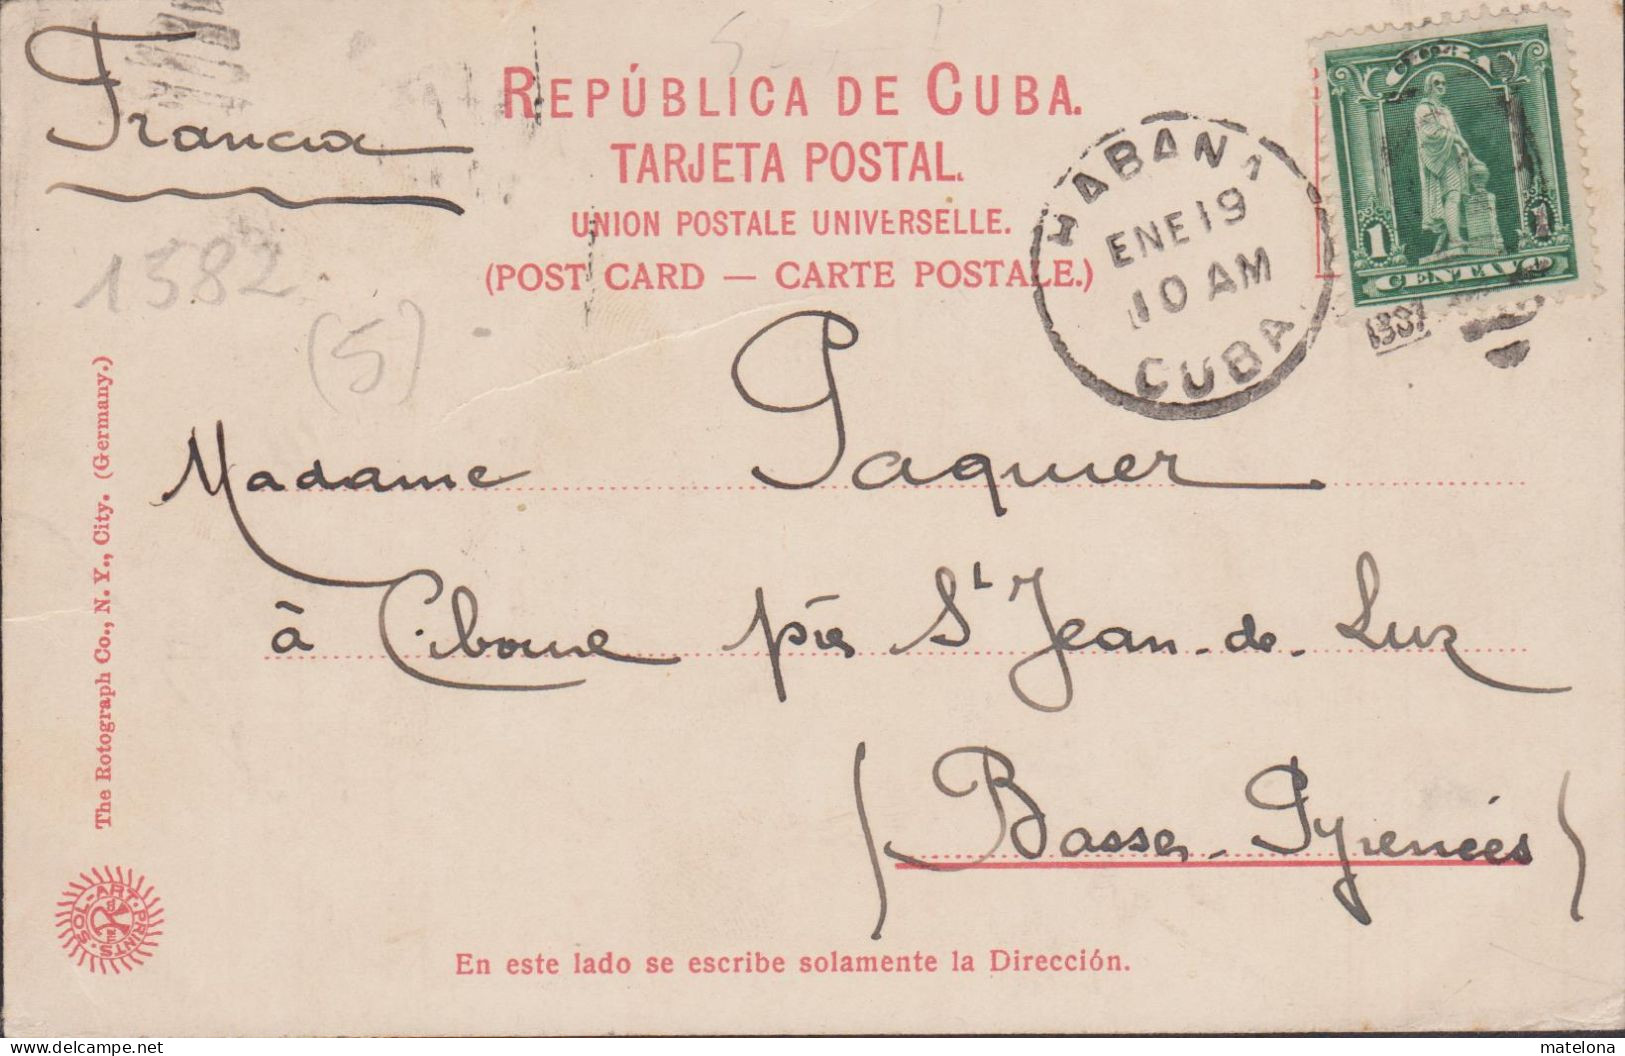 Francia
REPÚBLICA DE CUBA.
TARJETA POSTAL.
UNION POSTALE UNIVERSELLE.
(POST CARD — CARTE POSTALE.)
HABANA
ENE 19
10 AM
CUBA
1 CENTAVO 1
1582
(5)
Madame Paquier
à Ciboure près St Jean-de-Luz
(Basses-Pyrénées)
En este lado se escribe solamente la Dirección.
The Rotograph Co., N. Y., City. (Germany.)
SOL-ART-PRINTS
www.delcampe.net
matelona